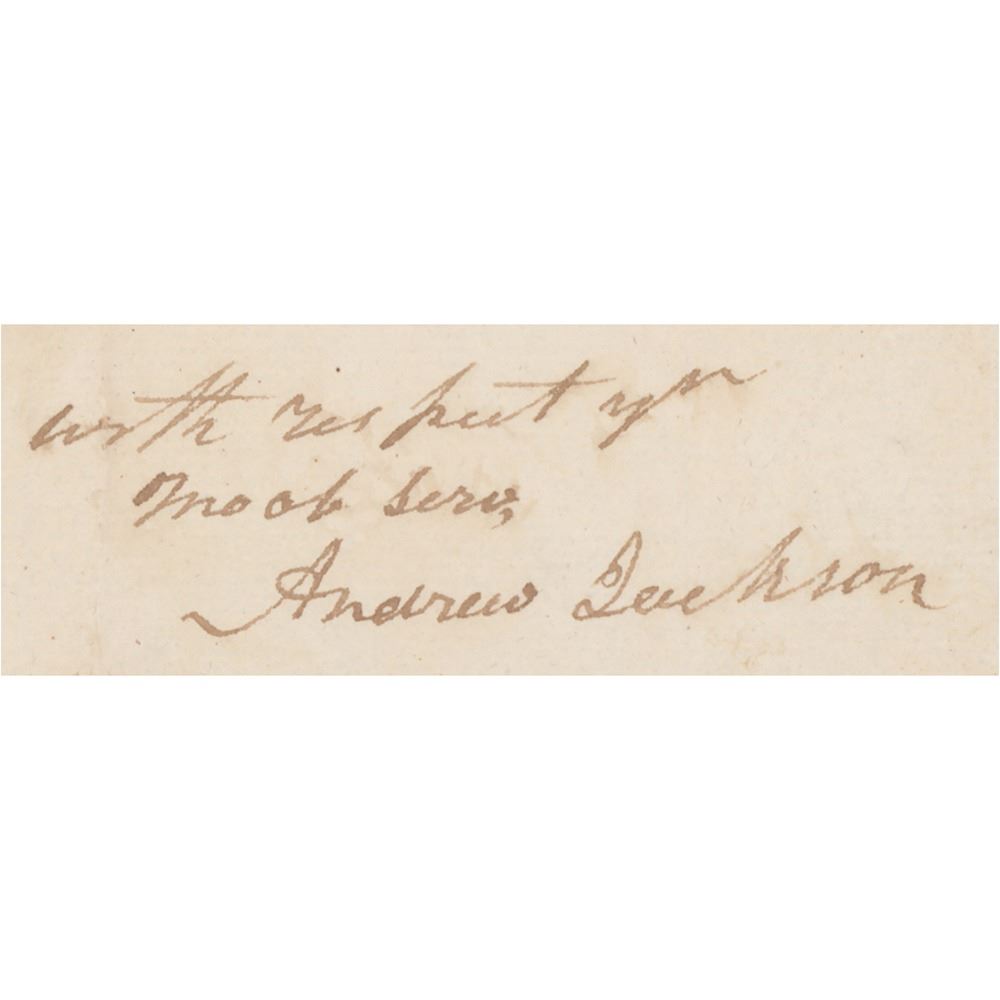 with respect yr
mo ob serv,
Andrew Jackson